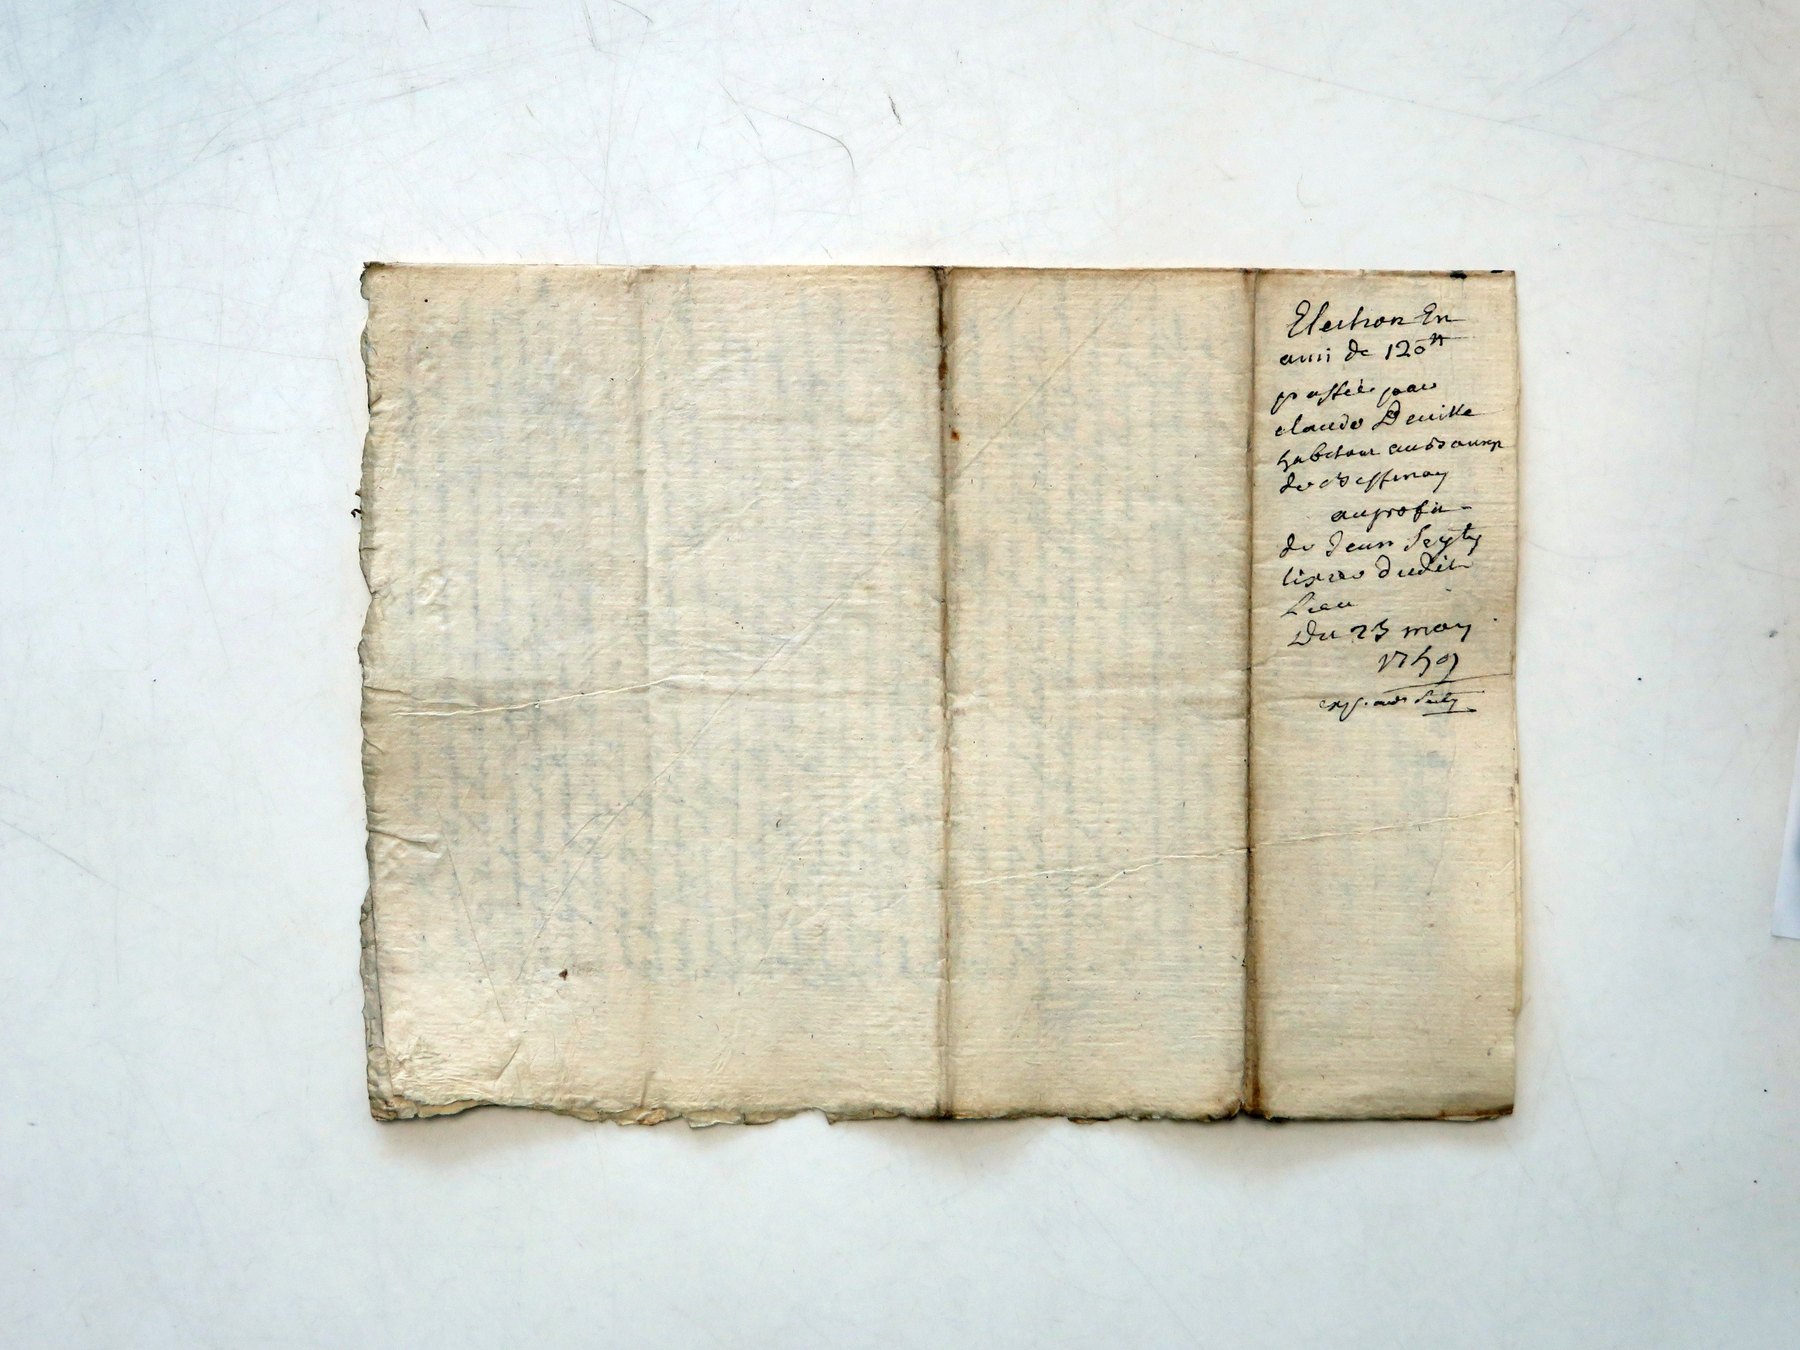 Election En
ami de 120ᵗᵗ
passée par
claude Deville
habitant au bourg
de Bessenay
au profit
de Jean
dudit
Lieu
Du 23 may
1759
exp.